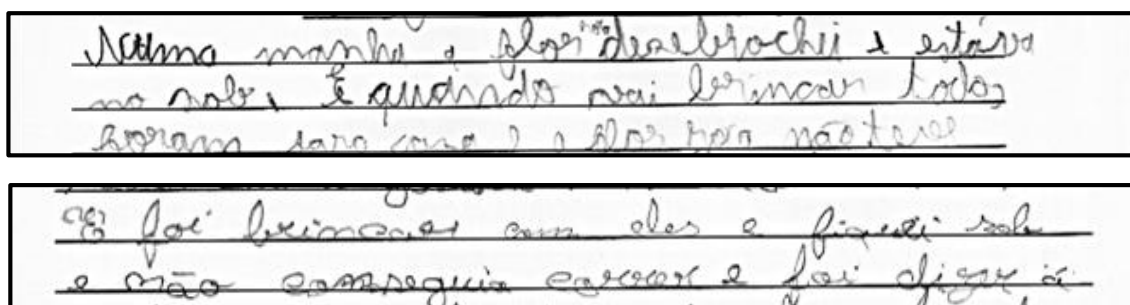 Numa manhã a flor desebrochii e estáva
no solo, E quando vai brincar todos
foram para casa e a flor não teve
E foi brincar com eles e fiquei sole
e não conseguia correr e foi dizer á